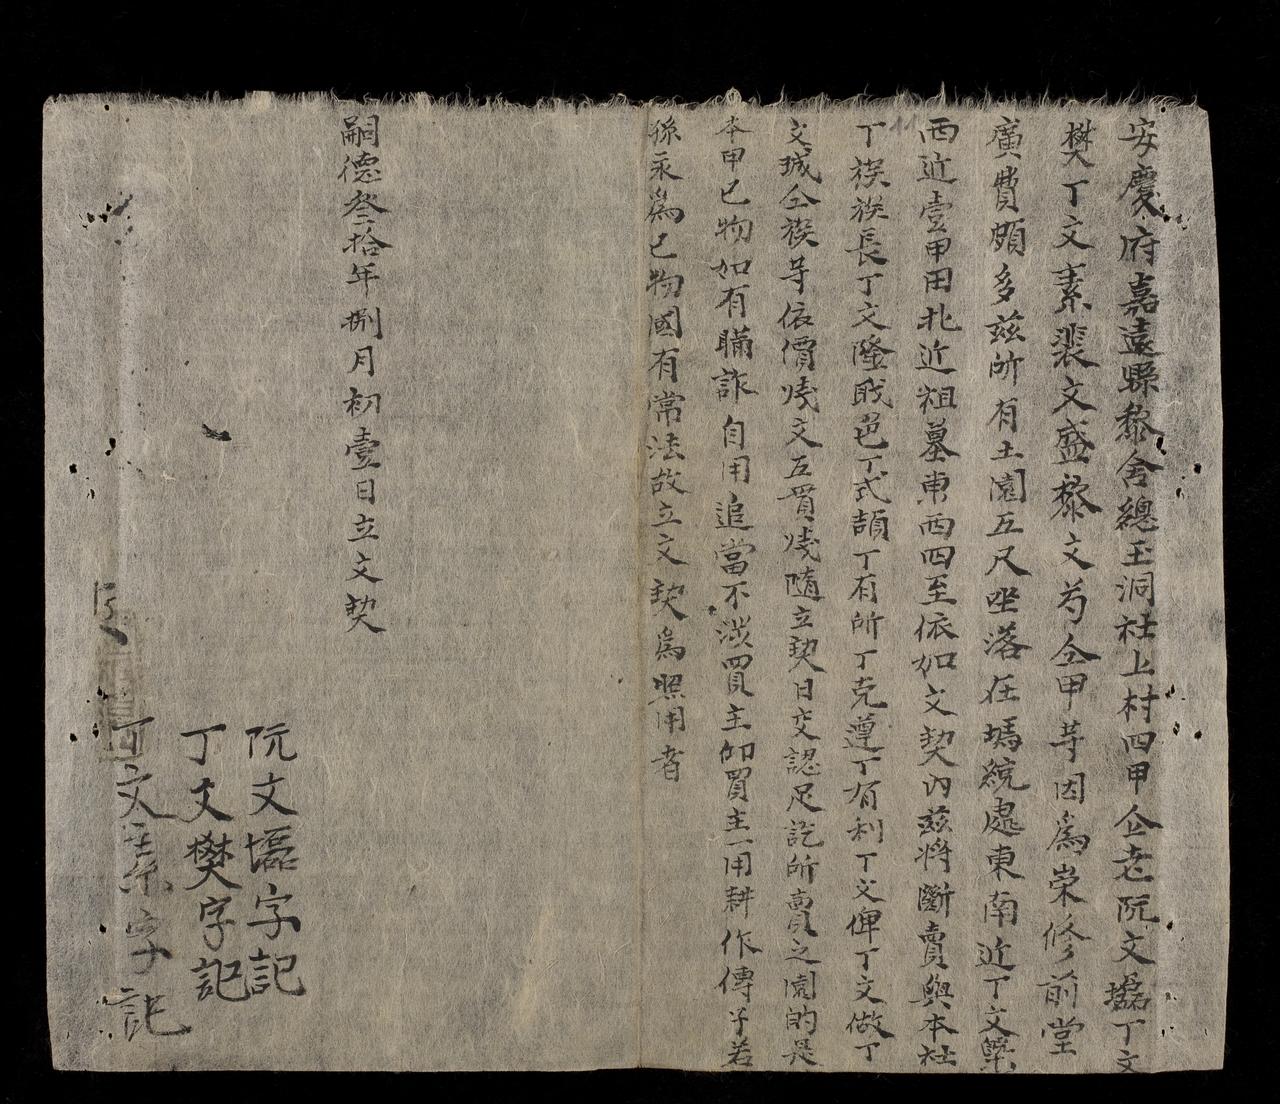 安慶府嘉遠縣黎舍總玉洞社上村四甲仝老阮文𡑱丁文
樊丁文素裴文盛黎文芍仝甲等因為榮修前堂
廣費頗多茲所有土園五尺坐落在塢統處東南近丁文槩
西近壹甲田北近祖墓東西四至依如文契內茲將斷賣與本社
丁族族長丁文隆戝邑丁式頡丁有所丁克遵丁有利丁文俾丁文做丁
文珹仝族等依價𬃊文五貫𬃊隨立契日交認足訖所賣之園的是
本甲已物如有瞞詐自用追當不涉買主仰買主一用耕作傳子若
孫永為已物國有常法故立文契為照用者
嗣德叄拾年捌月初壹日立文契
阮文𡑱字記
丁文樊字記
丁文素字記